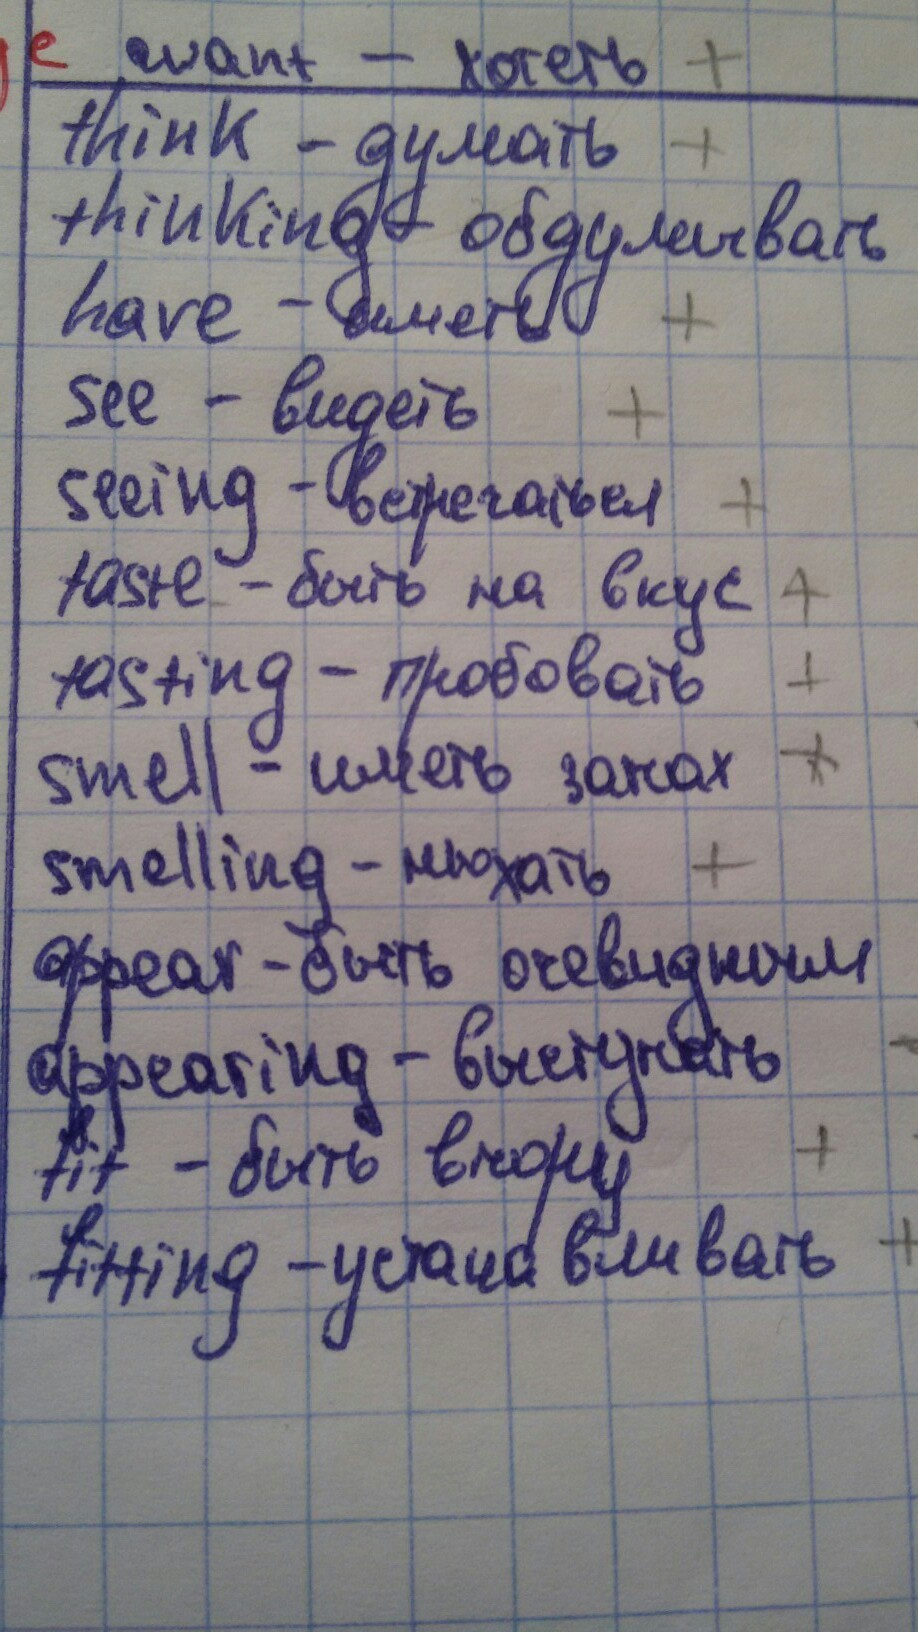 want - хотеть +
think - думать +
thinking - обдумывать
have - иметь +
see - видеть +
seeing - встречаться +
taste - быть на вкус +
tasting - пробовать +
smell - иметь запах +
smelling - нюхать +
appear - быть очевидным
appearing - выступать
fit - быть впору +
fitting - устанавливать +